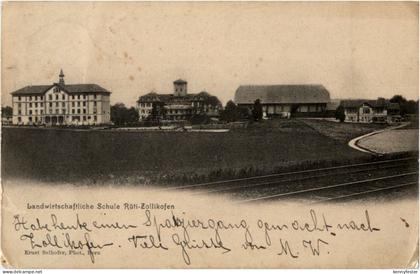 Landwirtschaftliche Schule Rüti-Zollikofen
Habe heute einen Spaziergang gemacht nach
Zollikofen. Viele Grüsse von M. W.
Ernst Selhofer, Phot., Bern
hennyfester